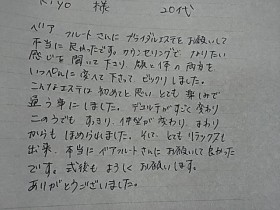 Kiyo 様 20代
ペア フルートさんに ブライダルエステを お願いして
本当に 良かったです。カウンセリングで なりたい
感じを 聞いて下さり 顔と体の両方を
いっぺんに 変えて下さって ビックリしました。
こんなエステは 初めてと思い とても 楽しみで
通う事にしました。デコルテが すごく変わり
二のうでも すっきり、体型が変わり、まわり
からも ほめられました。そして、とても リラックスも
出来、本当に ペアフルートさんに お願いして 良かった
です。式後も よろしく お願いします。
ありがとうございました。